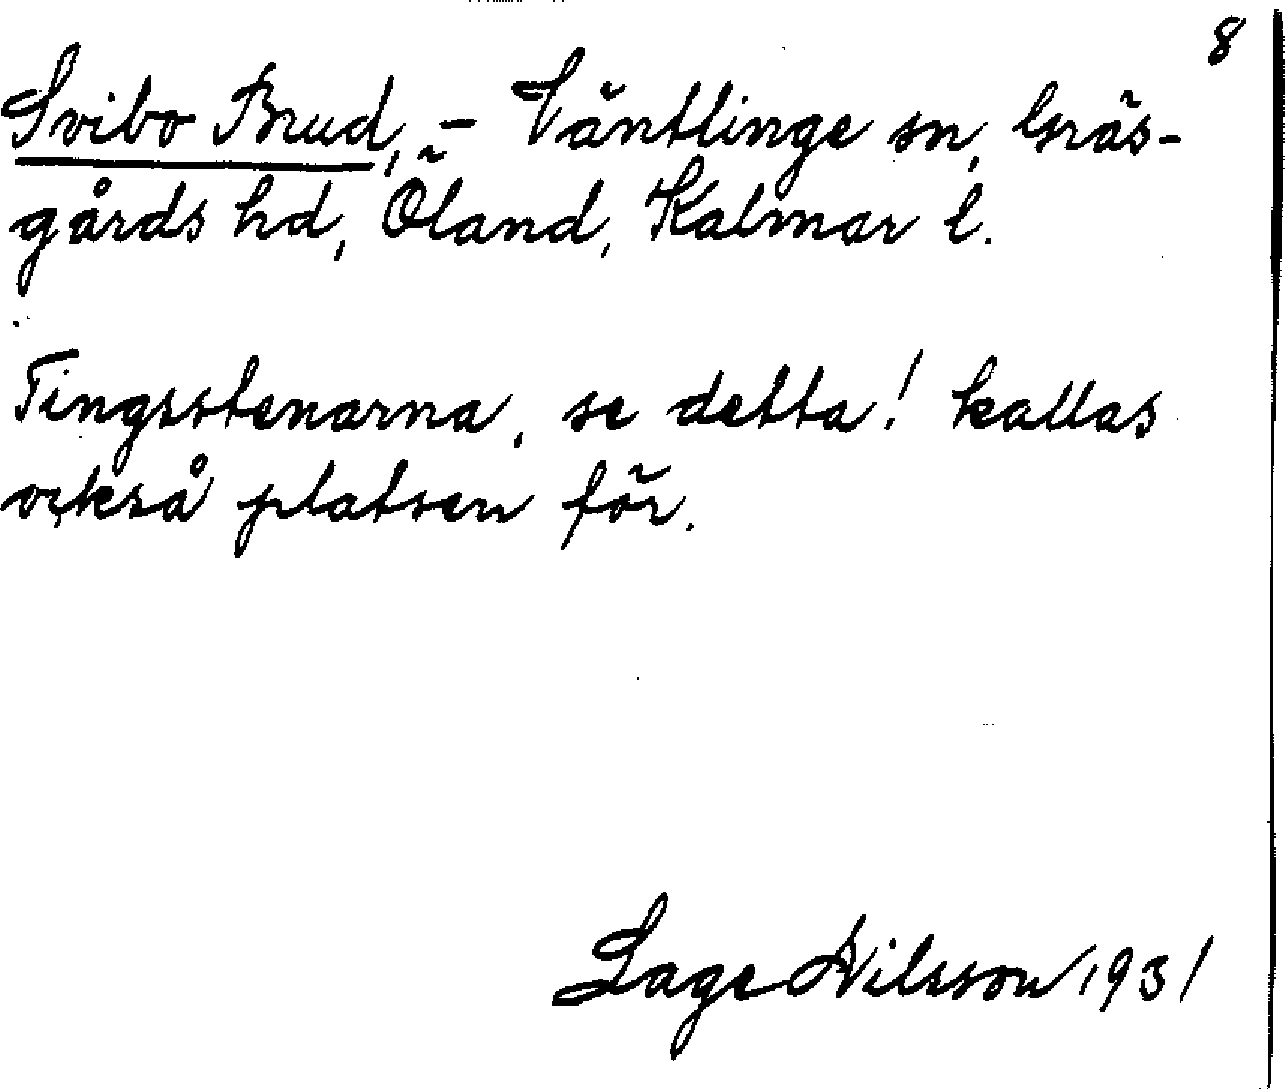 8
Svibo Brud, - Väntlinge sn, Gräs-
gårds hd, Öland, Kalmar l.
Tingsstenarna, se detta! kallas
också platsen för.
Lage Nilsson 1931